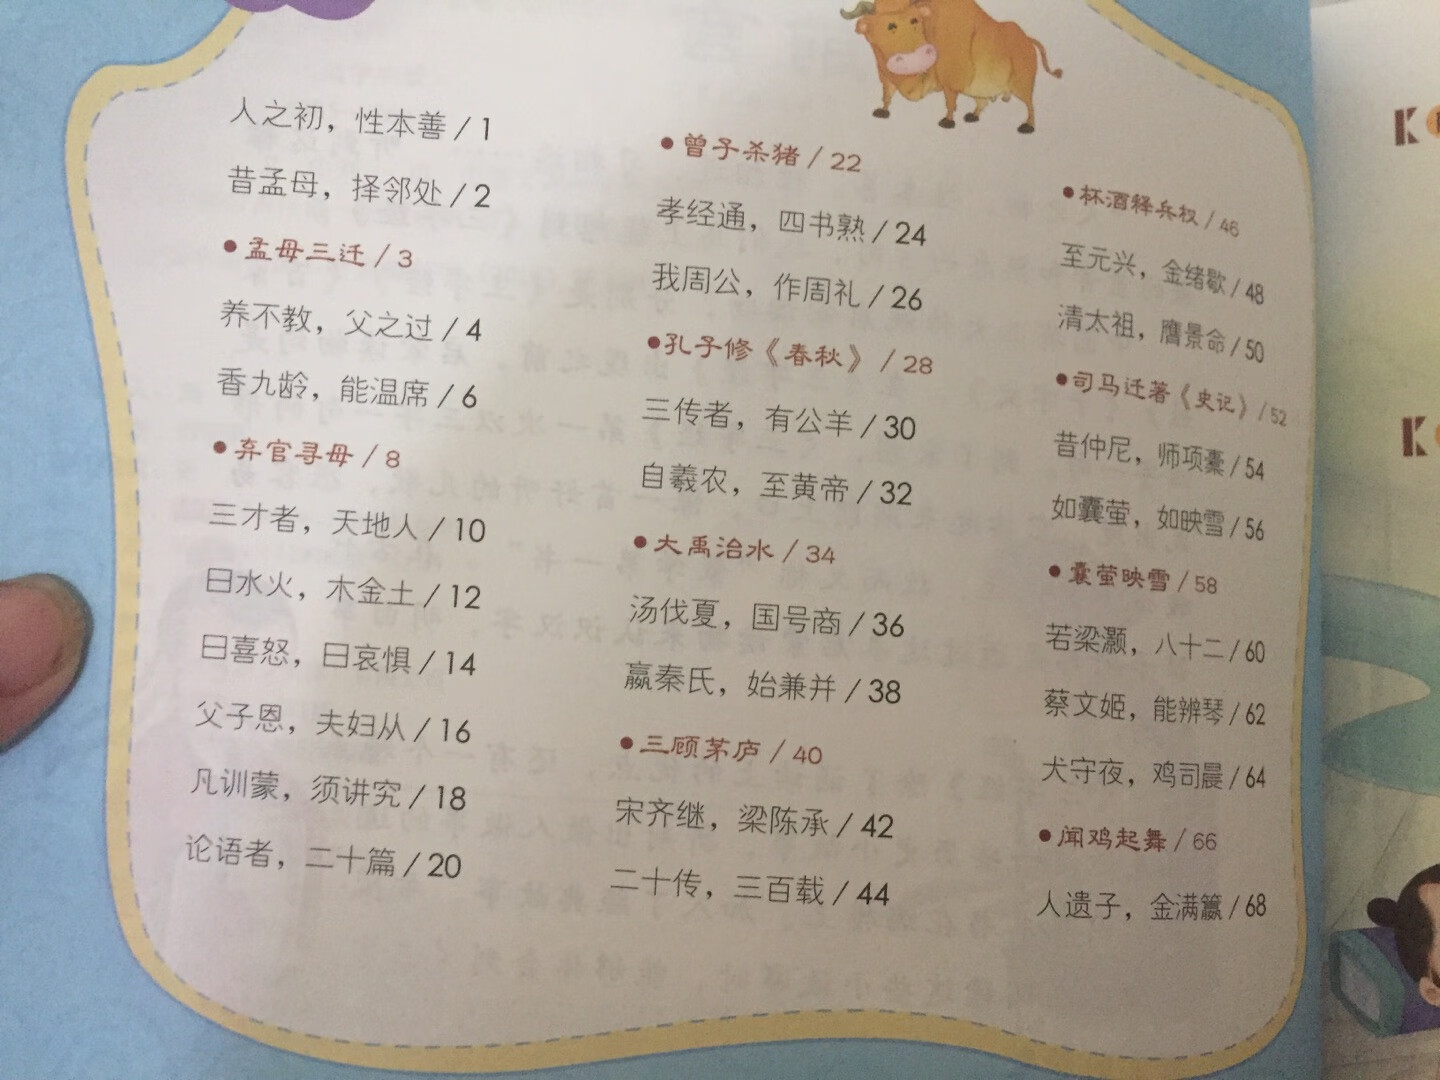 人之初，性本善 / 1
昔孟母，择邻处 / 2
●孟母三迁 / 3
养不教，父之过 / 4
香九龄，能温席 / 6
●弃官寻母 / 8
三才者，天地人 / 10
曰水火，木金土 / 12
曰喜怒，曰哀惧 / 14
父子恩，夫妇从 / 16
凡训蒙，须讲究 / 18
论语者，二十篇 / 20
●曾子杀猪 / 22
孝经通，四书熟 / 24
我周公，作周礼 / 26
●孔子修《春秋》 / 28
三传者，有公羊 / 30
自羲农，至黄帝 / 32
●大禹治水 / 34
汤伐夏，国号商 / 36
嬴秦氏，始兼并 / 38
●三顾茅庐 / 40
宋齐继，梁陈承 / 42
二十传，三百载 / 44
●杯酒释兵权 / 46
至元兴，金绪歇 / 48
清太祖，膺景命 / 50
●司马迁著《史记》 / 52
昔仲尼，师项橐 / 54
如囊萤，如映雪 / 56
●囊萤映雪 / 58
若梁灏，八十二 / 60
蔡文姬，能辨琴 / 62
犬守夜，鸡司晨 / 64
●闻鸡起舞 / 66
人遗子，金满籯 / 68
K
K